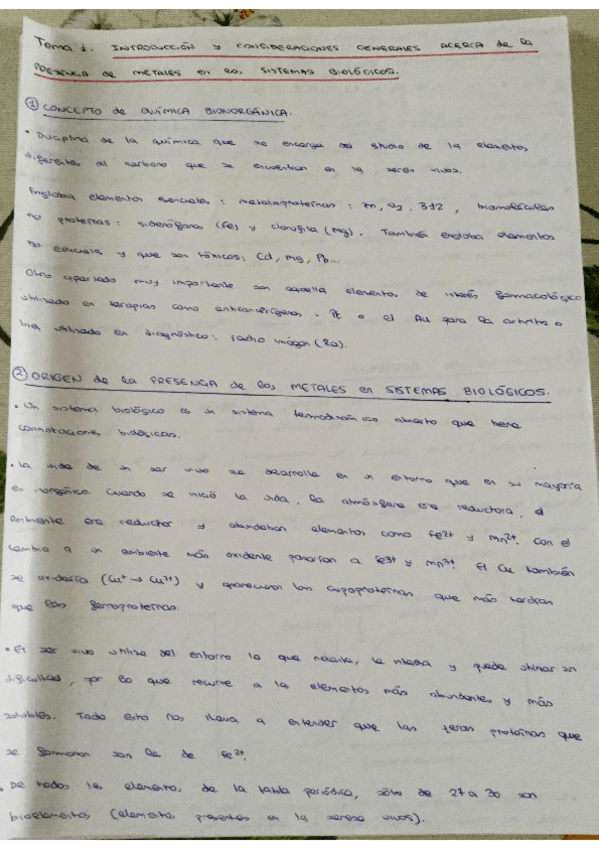 Tema 1. INTRODUCCIÓN y CONSIDERACIONES GENERALES ACERCA de la
PRESENCIA de METALES en los SISTEMAS BIOLÓGICOS.
① CONCEPTO de QUÍMICA BIONORGÁNICA.
• Disciplina de la química que se encarga del studio de ls elementos
diferentes al carbono que se encuentran en ls seres vivos.
Engloba elementos esenciales: metaloproteínas: , B12, biomoléculas
no proteínas: sideróforos (Fe) y clorofila (Mg). También engloba elementos
no esenciales y que son tóxicos: Cd, Mg, Pb...
Otro apartado muy importante son aquells elementos de interés farmacológico
utilizado en terapias como anticancerígenos: Pt o el Au para la artritis o
utilizado en diagnóstico: radio imagen (Ra).
② ORIGEN de la PRESENCIA de los METALES en SISTEMAS BIOLÓGICOS.
• Un sistema biológico es un sistema termodinámico abierto que tiene
connotaciones biológicas.
• La vida de un ser vivo se desarrolla en un entorno que en su mayoría
es inorgánico. Cuando se inició la vida, la atmósfera era reductora, el
ambiente era reductor y abundaban elementos como Fe2+ y Mn2+. Con el
cambio a un ambiente más oxidante pasarían a Fe3+ y Mn3+. El Cu también
se oxidaría (Cu+ → Cu2+) y aparecieron las cuproproteínas que más tardían
que las ferroproteínas.
• El ser vivo utiliza del entorno lo que necesita, le interesa y puede utilizar sin
dificultad, por lo que recurre a ls elementos más abundantes y más
solubles. Todo esto nos lleva a entender que las proteínas que
se formaron son la de Fe2+.
• De todos ls elementos de la tabla periódica, sólo de 27 a 30 son
bioelementos (elementos presentes en ls seres vivos).